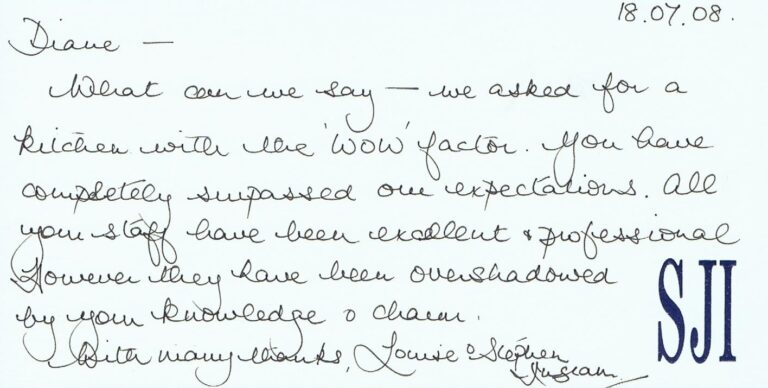 18.07.08.
Diane —
What can we say — we asked for a
kitchen with the 'WOW' factor. You have
completely surpassed our expectations. All
your staff have been excellent & professional
However they have been overshadowed
by your knowledge & charm.
With many thanks, Louise & Stephen
Ingram
SJI